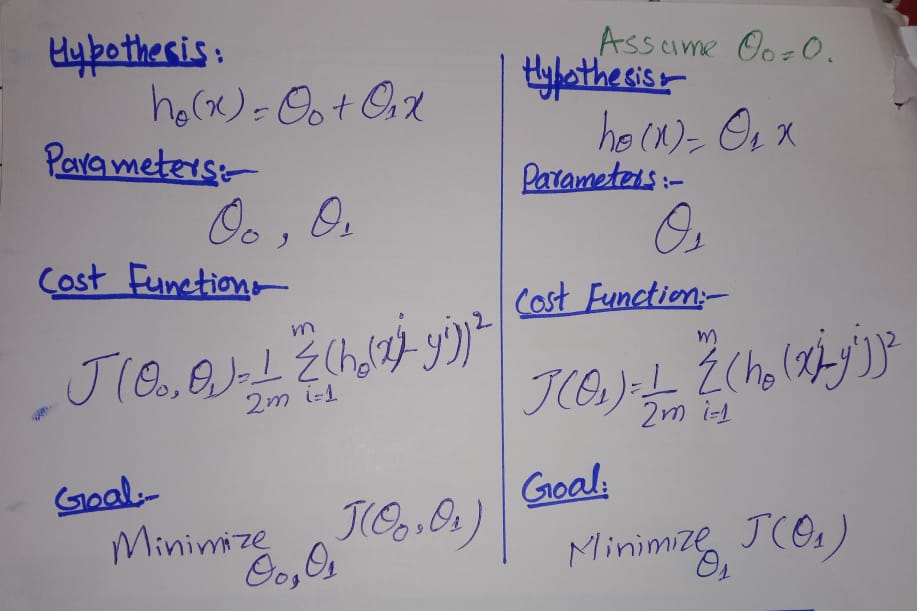 Hypothesis:
hθ(x) = θ₀ + θ₁x
Parameters:-
θ₀, θ₁
Cost Function:-
J(θ₀, θ₁) = 1/2m m∑i=1 (hθ(xⁱ) - yⁱ))²
Goal:-
Minimize θ₀, θ₁ J(θ₀, θ₁)
Assume θ₀ = 0.
Hypothesis:-
hθ(x) = θ₁ x
Parameters:-
θ₁
Cost Function:-
J(θ₁) = 1/2m m∑i=1 (hθ(xⁱ) - yⁱ))²
Goal:
Minimize θ₁ J(θ₁)